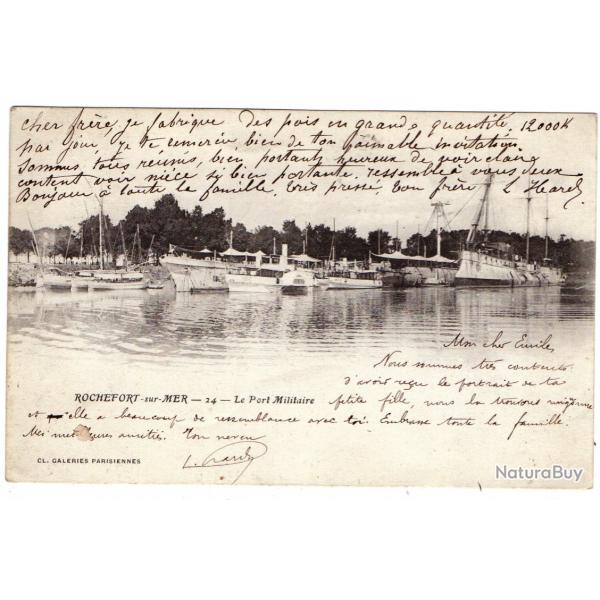 cher frère, je fabrique des pois en grande quantité, 12000K
par jour, je te remercie bien de ton aimable invitation.
Sommes tous réunis, bien portants heureux de voir claire
content voir nièce si bien portante. ressemble à vous deux
Bonjour à toute la famille. très pressé, ton frère L Hardy
Mon cher Emile,
Nous sommes très contents
d'avoir reçu le portrait de ta
ROCHEFORT-sur-MER — 24 — Le Port Militaire
petite fille, nous la trouvons mignonne
et elle a beaucoup de ressemblance avec toi. Embrasse toute la famille.
Mes meilleures amitiés. Ton neveu
L. Hardy
CL. GALERIES PARISIENNES
NaturaBuy